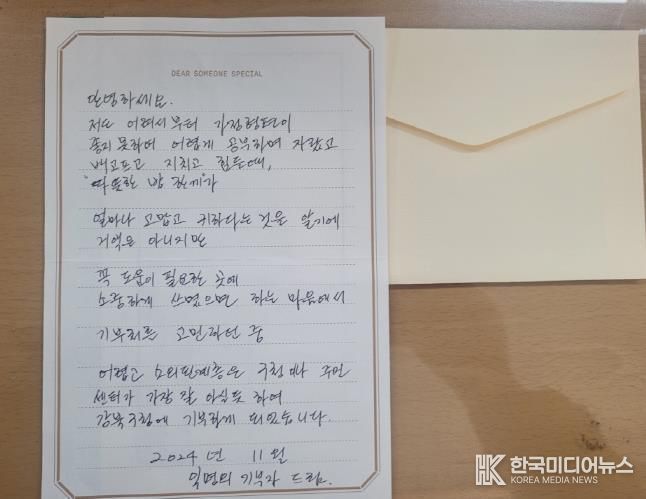 DEAR SOMEONE SPECIAL
안녕하세요.
저도 어려서부터 가정형편이
좋지 못하여 어렵게 공부하며 자랐고
배고프고 지치고 힘들때,
"따뜻한 밥 한끼"가
얼마나 고맙고 귀하다는 것을 알기에
거액은 아니지만
꼭 도움이 필요한 곳에
소중하게 쓰였으면 하는 마음에서
기부처를 고민하던 중
어렵고 소외된계층은 구청이나 주민
센터가 가장 잘 아실듯 하여
강북구청에 기부하게 되었습니다.
2024년 11월
익명의 기부자 드림.
한국미디어뉴스
KOREA MEDIA NEWS